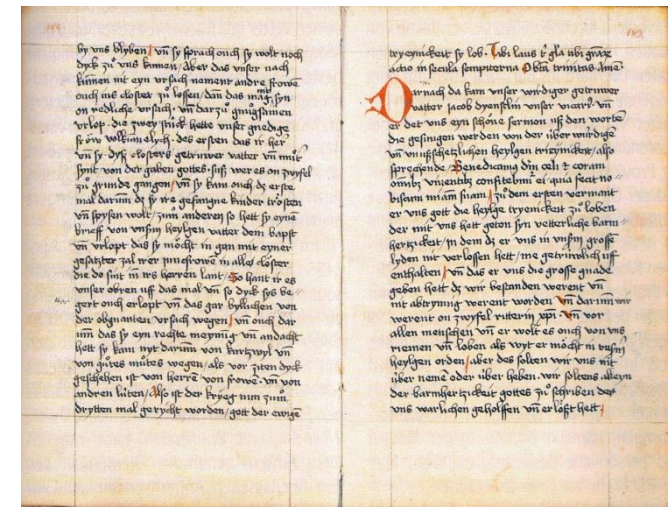 by vns blyben / vn̄ sy sprach ouch sy wolt noch
dyck zů vns kumen / Aber das vnser nach
kumen nit eyn vrsach nament andre frowen
ouch ins closter zů lossen / dan̄ das mag syn
on redliche vrsach · vn̄ darzů gnůgsamen
vrlop · die zwey stück hette vnser gnedige
frow wolkum̄elych · des ersten das ir her
vn̄ sy dyß closters getruwer vatter vn̄ můt
synt von der gaben gottes · suß wer es on zwyfel
zů grunde gangen / vn̄ sy kam ouch dz erste
mal darum̄ dz sy ire gefangne kinder trösten
vn̄ spysen wolt / zům anderen so hett sy eyne
brieff von vnsm̄ heylgen vatter dem bapst
vn̄ vrlopt das sy möcht in gan mit eyner
gesatzter zal irer iuncfrowē in alle clöster
die do sint in irs herren lant / So hant ir es
vnser obren uff das mal vn̄ so dyck sys be
gert ouch erlopt vn̄ das gar byllichen von
der obgnanten vrsach wegen / vn̄ ouch dar
um̄ das sy eyn rechte meynūg vn̄ andacht
hett sy kam nyt darum̄ von kurtzwyl vn̄
von gůtes můtes wegen / als vor ziten dyck
geschehen ist von herrē von frowē · vn̄ von
andren lüten / Also ist der kryeg nun zum̄
drytten mal gerycht worden / gott der ewigē
tryeynickeit sy lob · Tibi laus tˢ gl̄a tibi gr̄aꝝ
actio in secula sempiterna O bt̄a trinitas Ame
Darnach da kam vnser wirdiger getruwer
vatter jacob dyenstlin vnser vicary · vn̄
er det vns eyn schöne sermon uß den wortē
die gesungen werden von der über wirdigē
vn̄ unußschetzlichen heylgen tryeinickeit / also
sprechende / Benedicimus dm̄ celi et coram
omībꝫ viuentibꝫ confitebimˀ ei quia fecit no
biscum m̄iam suam / zů dem ersten vermant
er vns gott die heylge tryenickeit zů loben
der mit vns hett geton syn vetterliche barm
hertzickeit / in dem dz er vns in vnsm̄ grosse
lyden nit verlossen hett / me getruwlich uff
enthalten / vn̄ das er vns die grosse gnade
geben hett dz wir bestanden werent vn̄
nit abtrynnig werent worden / vn̄ darum̄ wir
werent on zwyfel ritterin xp̄i · vn̄ vor
allen menschen vn̄ er wolt es ouch von vns
riemen vn̄ loben als wyt er möcht in vnsm̄
heylgen orden / aber des solten wir vns nit
über nemē oder über heben · wir soltens alleyn
der barmhertzickeit gottes zů schriben der
vns warlichen geholffen vn̄ erlößt hett /